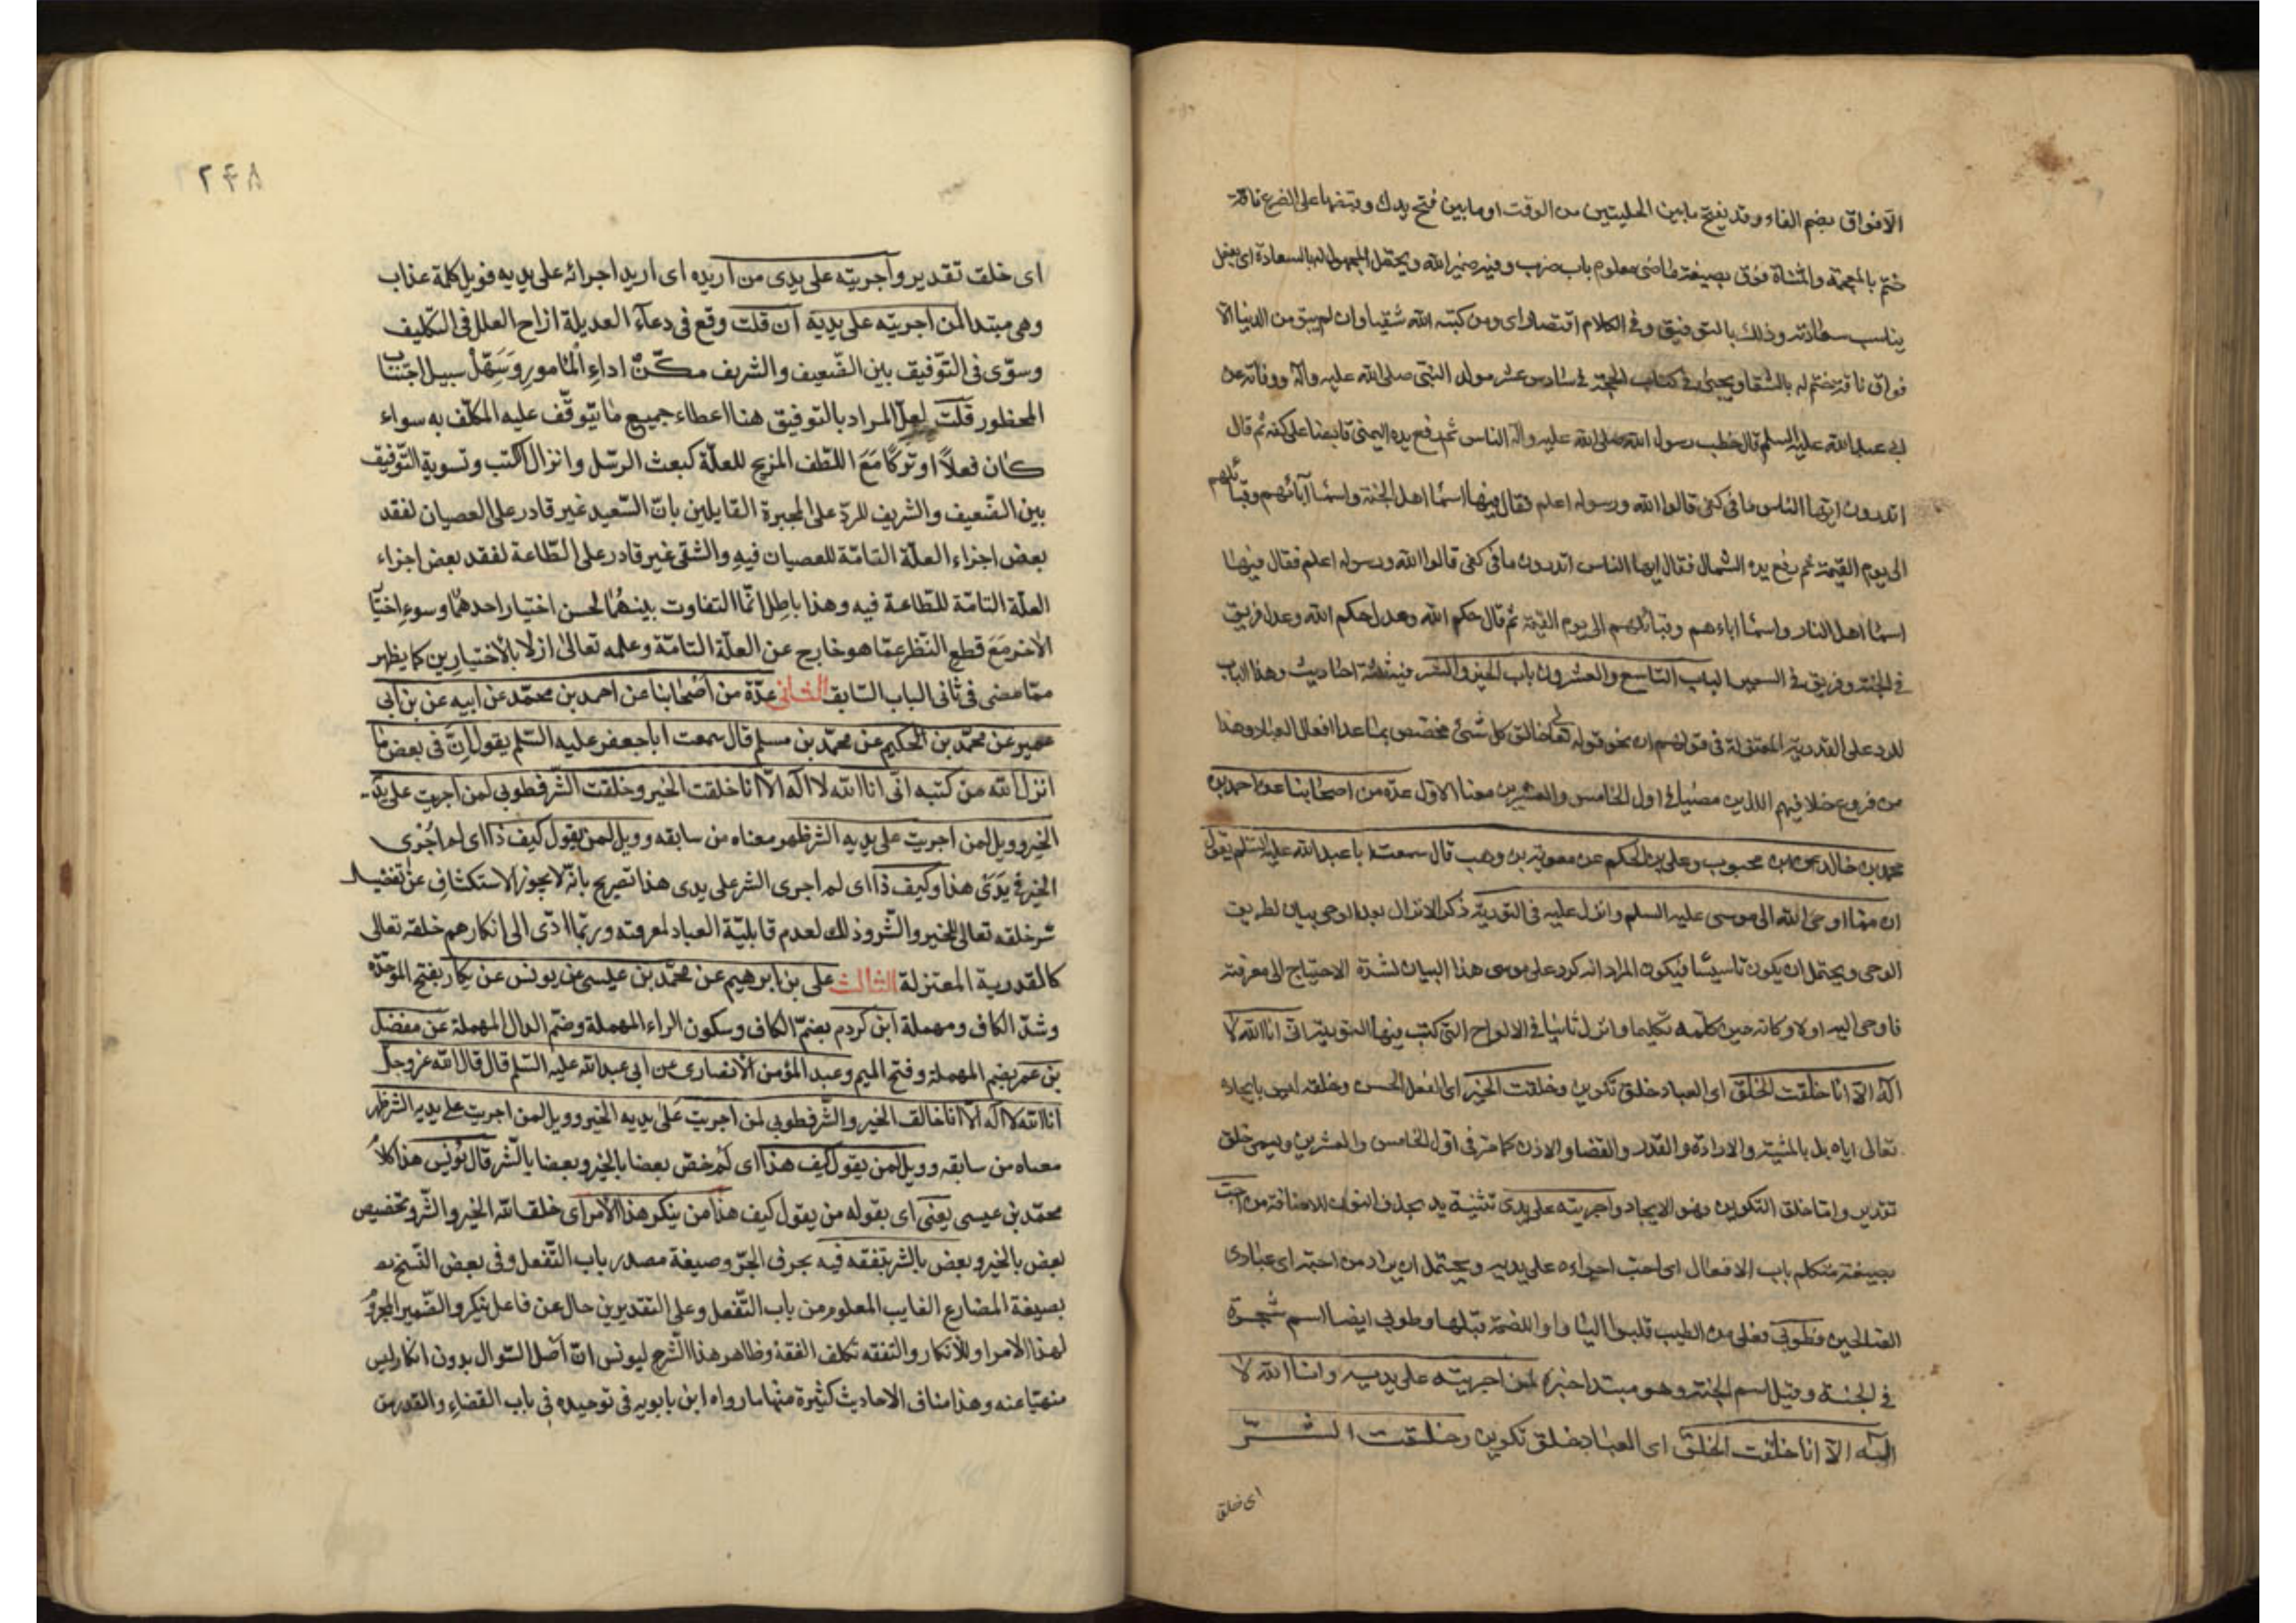 الا فواق بضم الفاء وقد يفتح ما بين الحلبتين من الوقت او ما بين فتح يدك وقبضها على الضرع ناقة
ختم بالمعجمة والمثناة فوق بصيغة ماضى معلوم باب ضرب وفيه ضمير الله ويحتمل المجهول له بالسعادة اى بفعل
يناسب سعادته وذلك بالتوفيق وفى الكلام اقتصار اى ومن كتبه الله شقيا وان لم يبق من الدنيا الا
فواق ناقة ختم له بالشقا ويجئ فى كتاب الحجة فى سادس عشر مولد النبى صلى الله عليه وآله ووفاته عن
ابى عبد الله عليه السلم قال خطب رسول الله صلى الله عليه واله الناس ثم رفع يده اليمنى قابضا على كفه ثم قال
اتدرون ايها الناس ما فى كفى قالوا الله ورسوله اعلم فقال فيها اسما اهل الجنة واسما آبائهم وقبائلهم
الى يوم القيمة ثم رفع يده الشمال فقال ايها الناس اتدرون ما فى كفى قالوا الله ورسوله اعلم فقال فيها
اسما اهل النار واسما اباءهم وقبائلهم الى يوم القيمة ثم قال حكم الله وعدل حكم الله وعدل فريق
فى الجنة وفريق فى السعير الباب التاسع والعشرون باب الخير والشر فيه ثلثة احاديث وهذا الباب
للرد على القدرية المعتزلة فى قولهم ان نحو قوله تعالى خالق كل شئ مخصص بما عدا افعال العباد وهذا
من فروع خلافيهم اللذين مضيا فى اول الخامس والعشرين معنا الاول عدة من اصحابنا عن احمد بن
محمد بن خالد عن ابن محبوب وعلى بن الحكم عن معوية بن وهب قال سمعت ابا عبد الله عليه السلم يقول
ان مما اوحى الله الى موسى عليه السلم وانزل عليه فى التورية ذكر الانزال بعد الوحى بيان لطريق
الوحى ويحتمل ان يكون تاسيسا فيكون المراد انه كرر على موسى هذا البيان لشدة الاحتياج الى معرفته
فاوحى اليه اولا وكانه حين كلمه تكليما وانزل ثانيا فى الالواح التى كتب فيها التورية انى انا الله لا
اله الا انا خلقت الخلق اى العباد خلق تكوين وخلقت الخير اى الفعل الحسن وخلقه ليس بايجاده
تعالى اياه بل بالمشية والارادة والقدر والقضا والاذن كما مر فى اول الخامس والعشرين ويسمى خلق
تقدير واما خلق التكوين فهو الايجاد واجريته على يدى تثنية يد بحذف النون للاضافة من احب
بصيغة متكلم باب الافعال اى احب اجراءه على يديه ويحتمل ان يراد من احبه اى عبادى
الصالحين فطوبى فعلى من الطيب قلبوا اليا واوا للضمة قبلها وطوبى ايضا اسم شجرة
فى الجنة وقيل اسم الجنة وهو مبتدا خبره لمن اجريته على يديه وانا الله لا
اله الا انا خلقت الخلق اى العباد خلق تكوين وخلقت الشر
اى خلق
٢٤٨
اى خلق تقدير واجريته على يدى من اريده اى اريد اجرائه على يديه فويل كلمة عذاب
وهى مبتدا لمن اجريته على يديه ان قلت وقع فى دعاء العديلة ازاح العلل فى التكليف
وسوّى فى التوفيق بين الضعيف والشريف مكّن اداء المامور وسهّل سبيل اجتناب
المحظور قلت لعل المراد بالتوفيق هنا اعطاء جميع ما يتوقف عليه المكلف به سواء
كان فعلاً او تركًا مع اللطف المزيح للعلة كبعث الرسل وانزال الكتب وتسوية التوفيق
بين الضعيف والشريف للرد على المجبرة القايلين بان السعيد غير قادر على العصيان لفقد
بعض اجزاء العلة التامة للعصيان فيه والشقى غير قادر على الطاعة لفقد بعض اجزاء
العلة التامة للطاعة فيه وهذا باطل انما التفاوت بينهما لحسن اختيار احدهما وسوء اختيار
الاخر مع قطع النظر عما هو خارج عن العلة التامة وعلمه تعالى ازلا بالاختيارين كما يظهر
مما مضى فى ثانى الباب السابق الثانى عدة من اصحابنا عن احمد بن محمد عن ابيه عن بن ابى
عمير عن محمد بن الحكيم عن محمد بن مسلم قال سمعت ابا جعفر عليه السلم يقول ان فى بعض ما
انزل الله من كتبه انى انا الله لا اله الا انا خلقت الخير وخلقت الشر فطوبى لمن اجريت على يديه
الخير وويل لمن اجريت على يديه الشر ظهر معناه من سابقه وويل لمن يقول كيف ذا اى لم اجرى
الخير فى يدى هذا وكيف ذا اى لم اجرى الشر على يدى هذا تصريح بانه لا يجوز الاستكشاف عن تفضيل
سر خلقه تعالى للخير والشر وذلك لعدم قابلية العباد لمعرفته وربما ادى الى انكارهم خلقه تعالى
كالقدرية المعتزلة الثالث على بن ابرهيم عن محمد بن عيسى عن يونس عن بكار بفتح الموحدة
وشد الكاف ومهملة ابن كردم بضم الكاف وسكون الراء المهملة وضم الدال المهملة عن مفضل
بن عمر بضم المهملة وفتح الميم وعبد المؤمن الانصارى عن ابى عبد الله عليه السلم قال قال الله عز وجل
انا الله لا اله الا انا خالق الخير والشر فطوبى لمن اجريت على يديه الخير وويل لمن اجريت على يديه الشر ظهر
معناه من سابقه وويل لمن يقول كيف هذا اى لم خص بعضا بالخير وبعضا بالشر قال يونس هذا كلام
محمد بن عيسى يعنى اى بقوله من يقول كيف هذا من ينكر هذا الامر اى خلق الله الخير والشر وتخصيص
بعض بالخير وبعض بالشر بتفقه فيه بحرف الجر وصيغة مصدر باب التفعل وفى بعض النسخ
بصيغة المضارع الغايب المعلوم من باب التفعل وعلى التقديرين حال عن فاعل ينكر والضمير المجرور
لهذا الامر او للانكار والتفقه تكلف الفقه وظاهر هذا الشرح ليونس ان اصل السوال بدون انكار ليس
منهيا عنه وهذا مناف الاحاديث كثيرة منها ما رواه ابن بابويه فى توحيده فى باب القضاء والقدر من